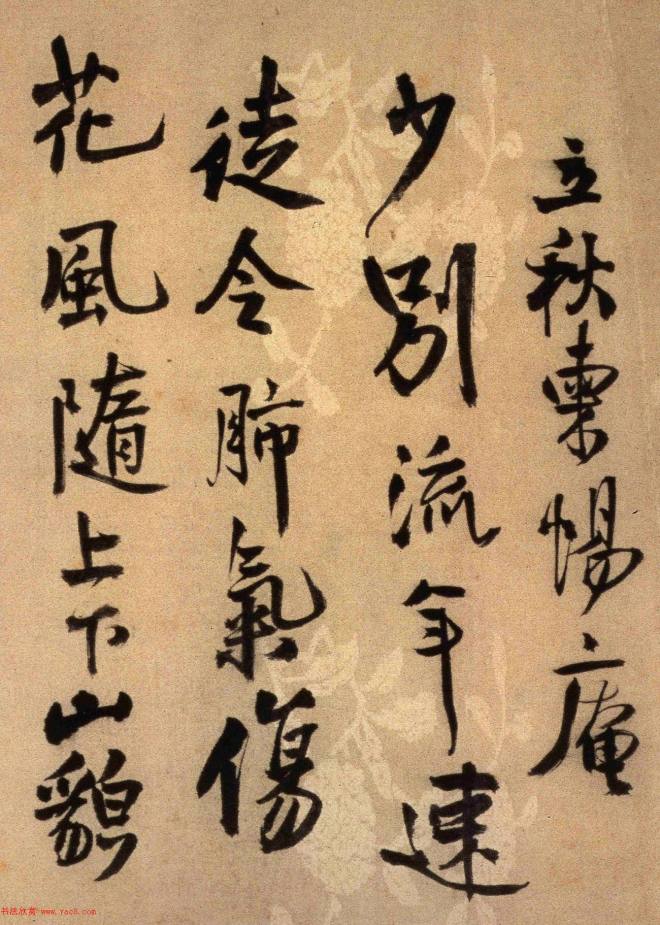 立秋柬惕庵
少別流年速
徒令肺氣傷
花風隨上下山貌
书法欣赏-www.yac8.com